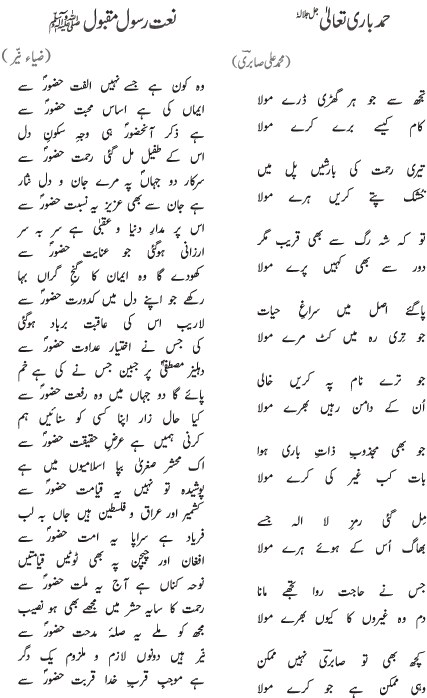 حمد باری تعالیٰ جل جلالہٗ
(محمد علی صابریؔ)
تجھ سے جو ہر گھڑی ڈرے مولا
کام کیسے برے کرے مولا
تیری رحمت کی بارشیں پل میں
خشک پتے کریں ہرے مولا
تو کہ شہ رگ سے بھی قریب مگر
دور سے بھی کہیں پرے مولا
پاگئے اصل میں سراغِ حیات
جو تری رہ میں کٹ مرے مولا
جو ترے نام پہ کریں خالی
اُن کے دامن رہیں بھرے مولا
جو بھی مجذوب ذاتِ باری ہوا
بات کب غیر کی کرے مولا
مِل گئی رمزِ لا الہ جسے
بھاگ اُس کے ہوئے ہرے مولا
جس نے حاجت روا تجھے مانا
دم وہ غیروں کا کیوں بھرے مولا
کچھ بھی تو صابریؔ نہیں ممکن
ہے وہ ممکن جو کرے مولا
نعت رسول مقبول ﷺ
(ضیاء نیّر)
وہ کون ہے جسے نہیں الفت حضورؐ سے
ایماں کی ہے اساس محبت حضورؐ سے
ہے ذکر آنحضورؐ ہی وجہِ سکونِ دل
اس کے طفیل مل گئی رحمت حضورؐ سے
سرکارِ دو جہاںؐ پہ مرے جان و دل نثار
ہے جان سے بھی عزیز یہ نسبت حضورؐ سے
اس پر مدارِ دنیا و عقبیٰ ہے سر بہ سر
ارزانی ہوگئی جو عنایت حضورؐ سے
کھودے گا وہ ایمان کا گنجِ گراں بہا
رکھے جو اپنے دل میں کدورت حضورؐ سے
لاریب اس کی عاقبت برباد ہوگئی
کی جس نے اختیار عداوت حضورؐ سے
دہلیزِ مصطفیٰؐ پر جبیں جس نے کی ہے خم
پائے گا دو جہاں میں وہ رفعت حضورؐ سے
کیا حال زار اپنا کسی کو سنائیں ہم
کرنی ہمیں ہے عرضِ حقیقت حضورؐ سے
اک محشرِ صغریٰ بپا اسلامیوں میں ہے
پوشیدہ تو نہیں یہ قیامت حضورؐ سے
کشمیر اور عراق و فلسطین ہیں جاں بہ لب
فریاد ہے سراپا یہ امت حضورؐ سے
افغان اور چیچن پہ بھی ٹوٹیں قیامتیں
نوحہ کناں ہے آج یہ ملت حضورؐ سے
رحمت کا سایہ حشر میں مجھے بھی ہو نصیب
مجھ کو ملے یہ صلۂ مدحت حضورؐ سے
نیّر ہیں دونوں لازم و ملزوم یک دگر
ہے موجبِ قربِ خدا قربت حضورؐ سے